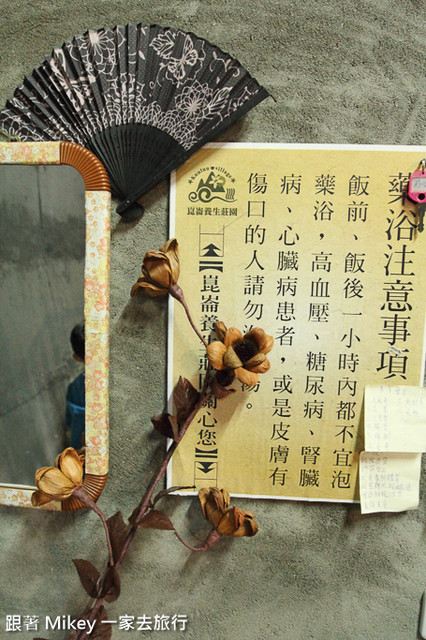 藥浴注意事項
飯前、飯後一小時內都不宜泡
藥浴，高血壓、糖尿病、腎臟
病、心臟病患者，或是皮膚有
傷口的人請勿湯。
kunlun village
崑崙養生莊園
【崑崙養生莊園關心您】
跟著 Mikey 一家去旅行